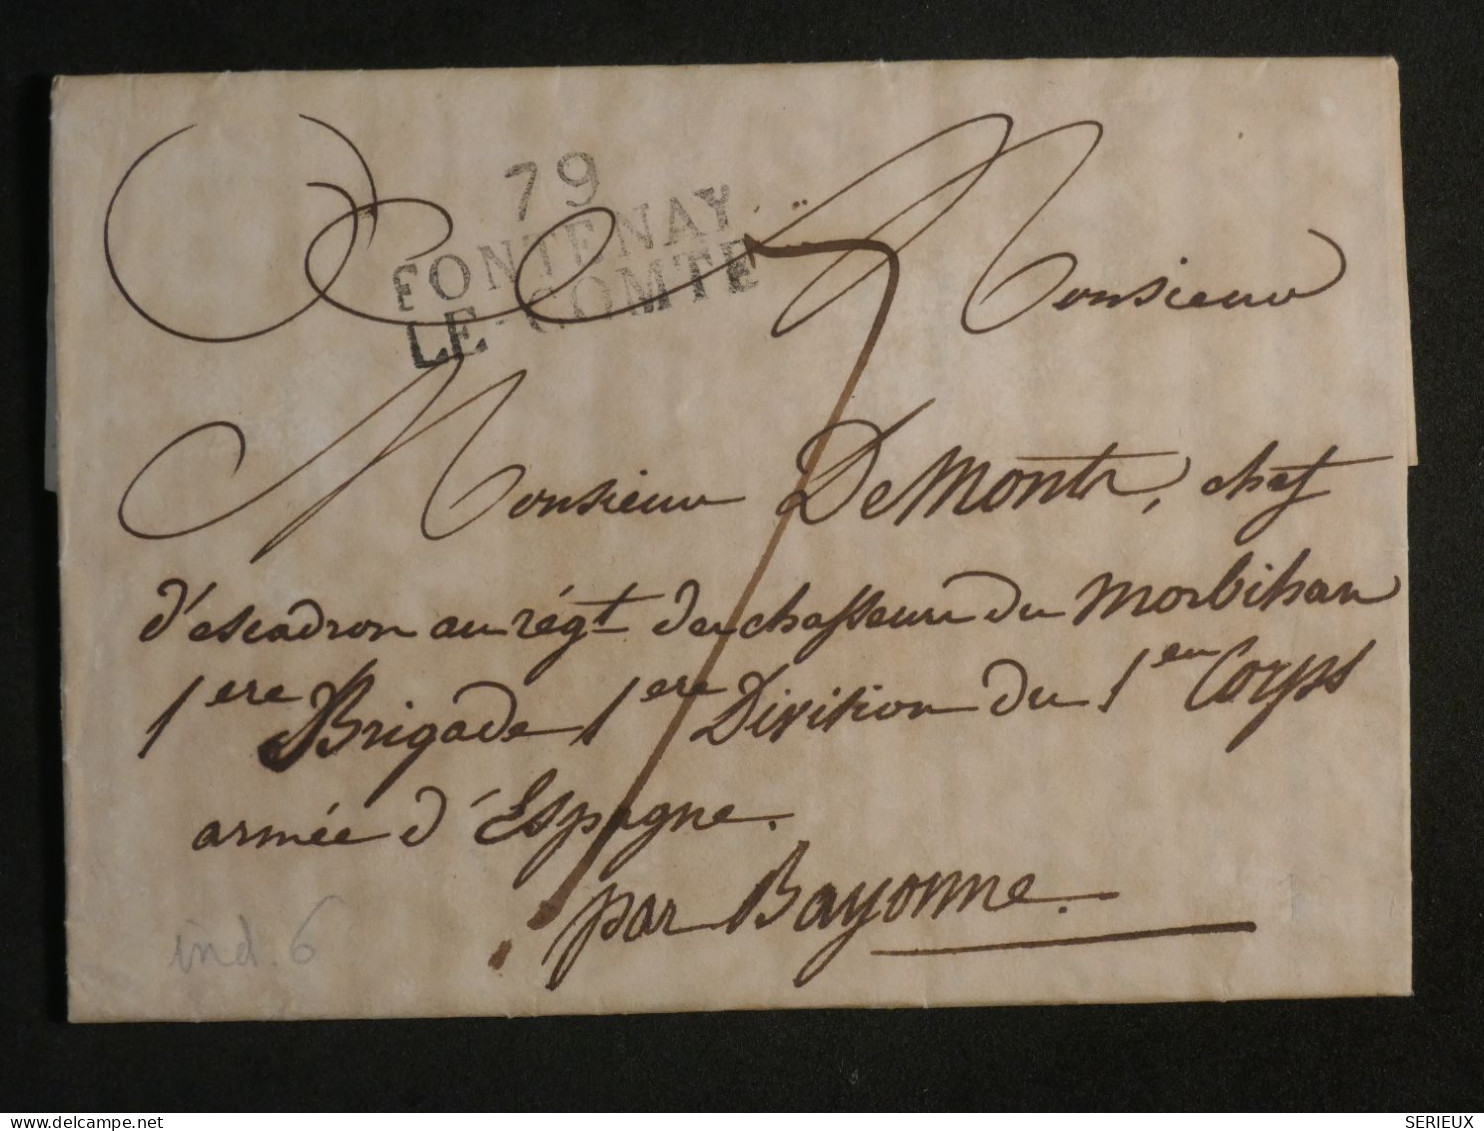 79
FONTENAY
LE-COMTE
7
Monsieur
Monsieur De Monts, chef
d'escadron au régt des chasseurs du Morbihan
1ere Brigade 1ere Division du 1er Corps
armée d'Espagne.
par Bayonne.
ind. 6
SERIEUX
delcampe.net